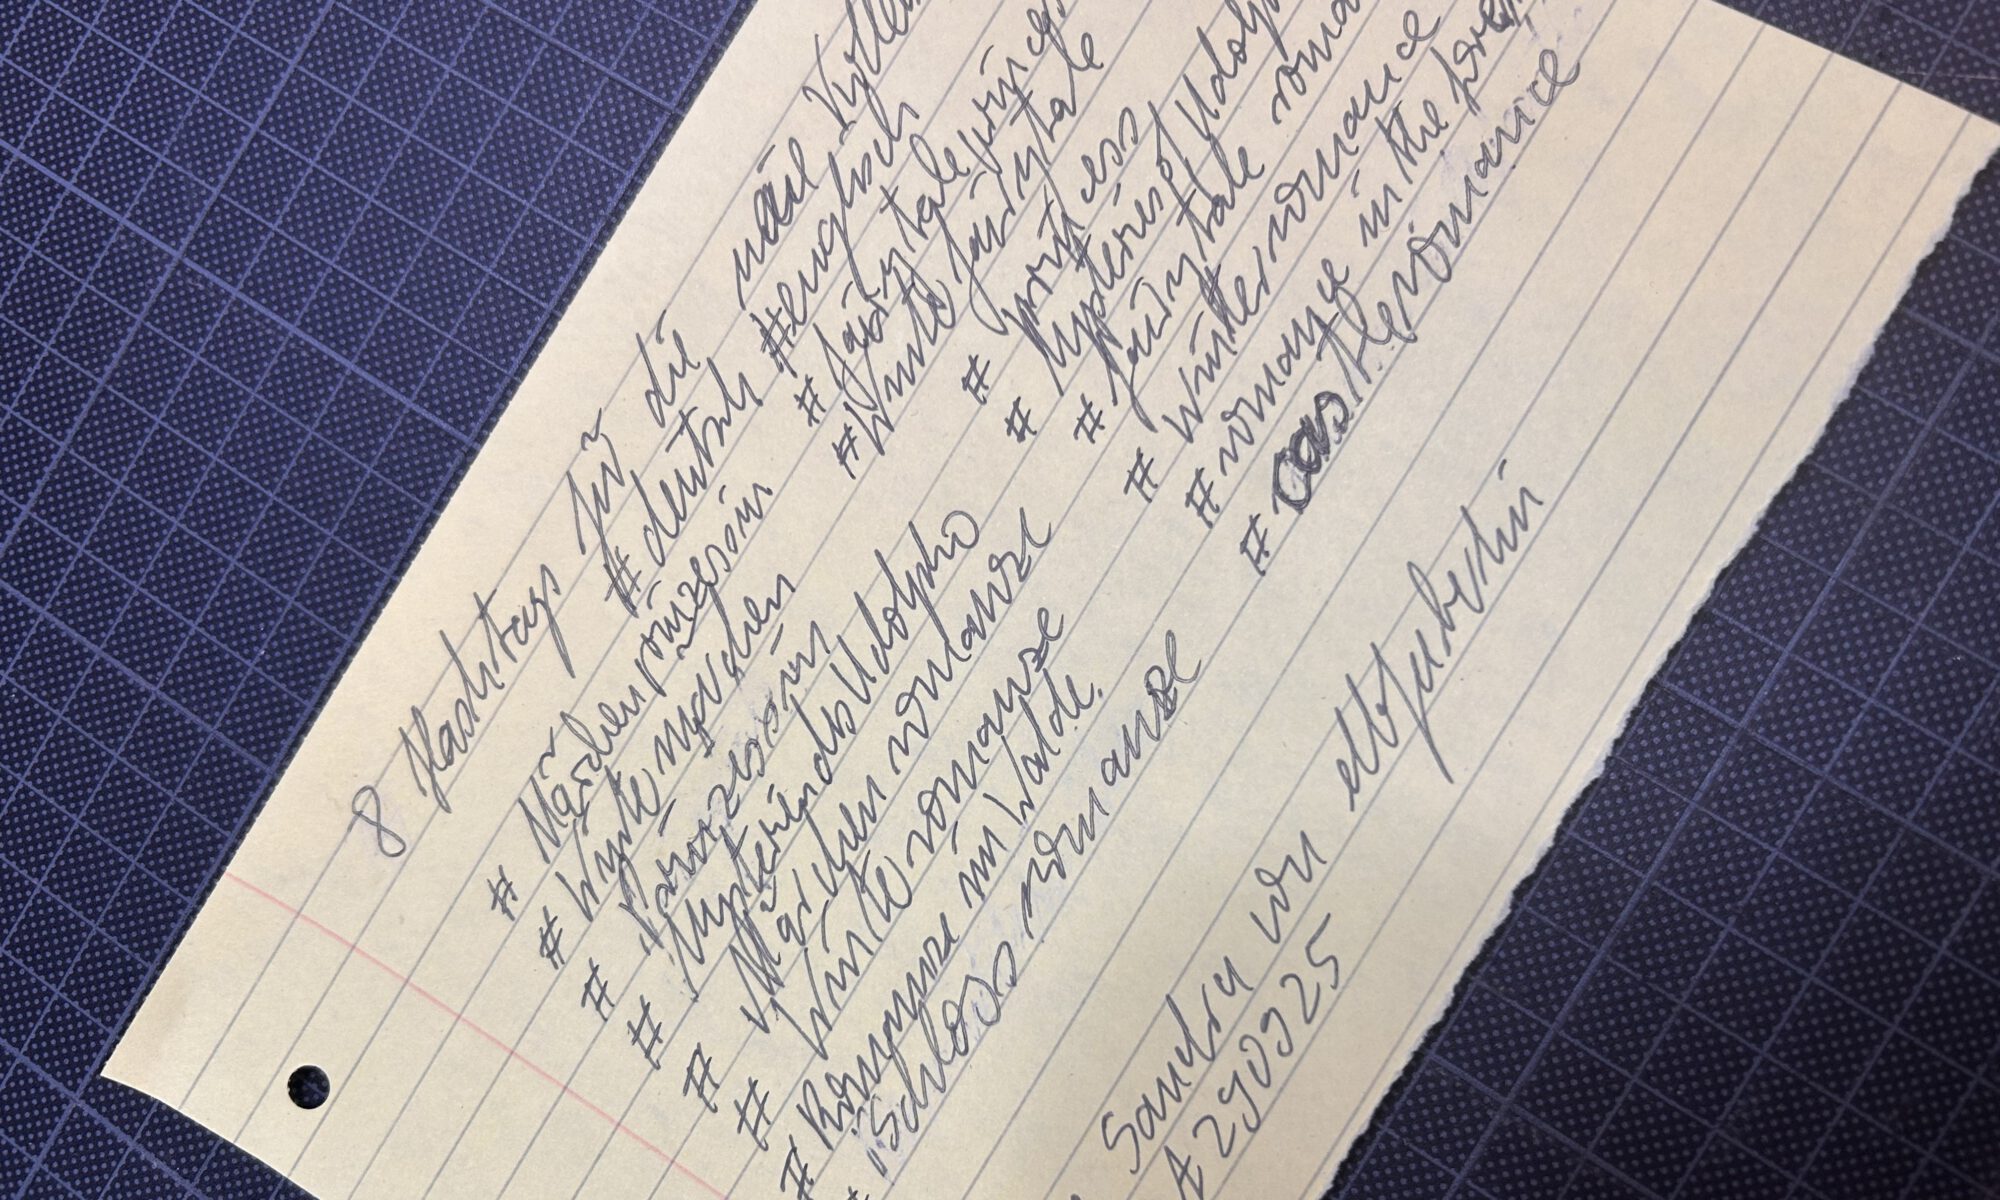 8 Hashtags für die
#deutsch #englisch
#Märchenprinzessin #fairytaleprinces
#Wintermärchen #Winterfairytale
#Prinzessin #princess
#MysteriendesUdolpho #Mysteriesof Udolp
#Märchenromanze #fairytale roma
#Winterromanze #Winterromance
#Romanze im Walde #romance in the fore
#Schlossromanze #castleromance
Sandra von elbfuberlin
A290925